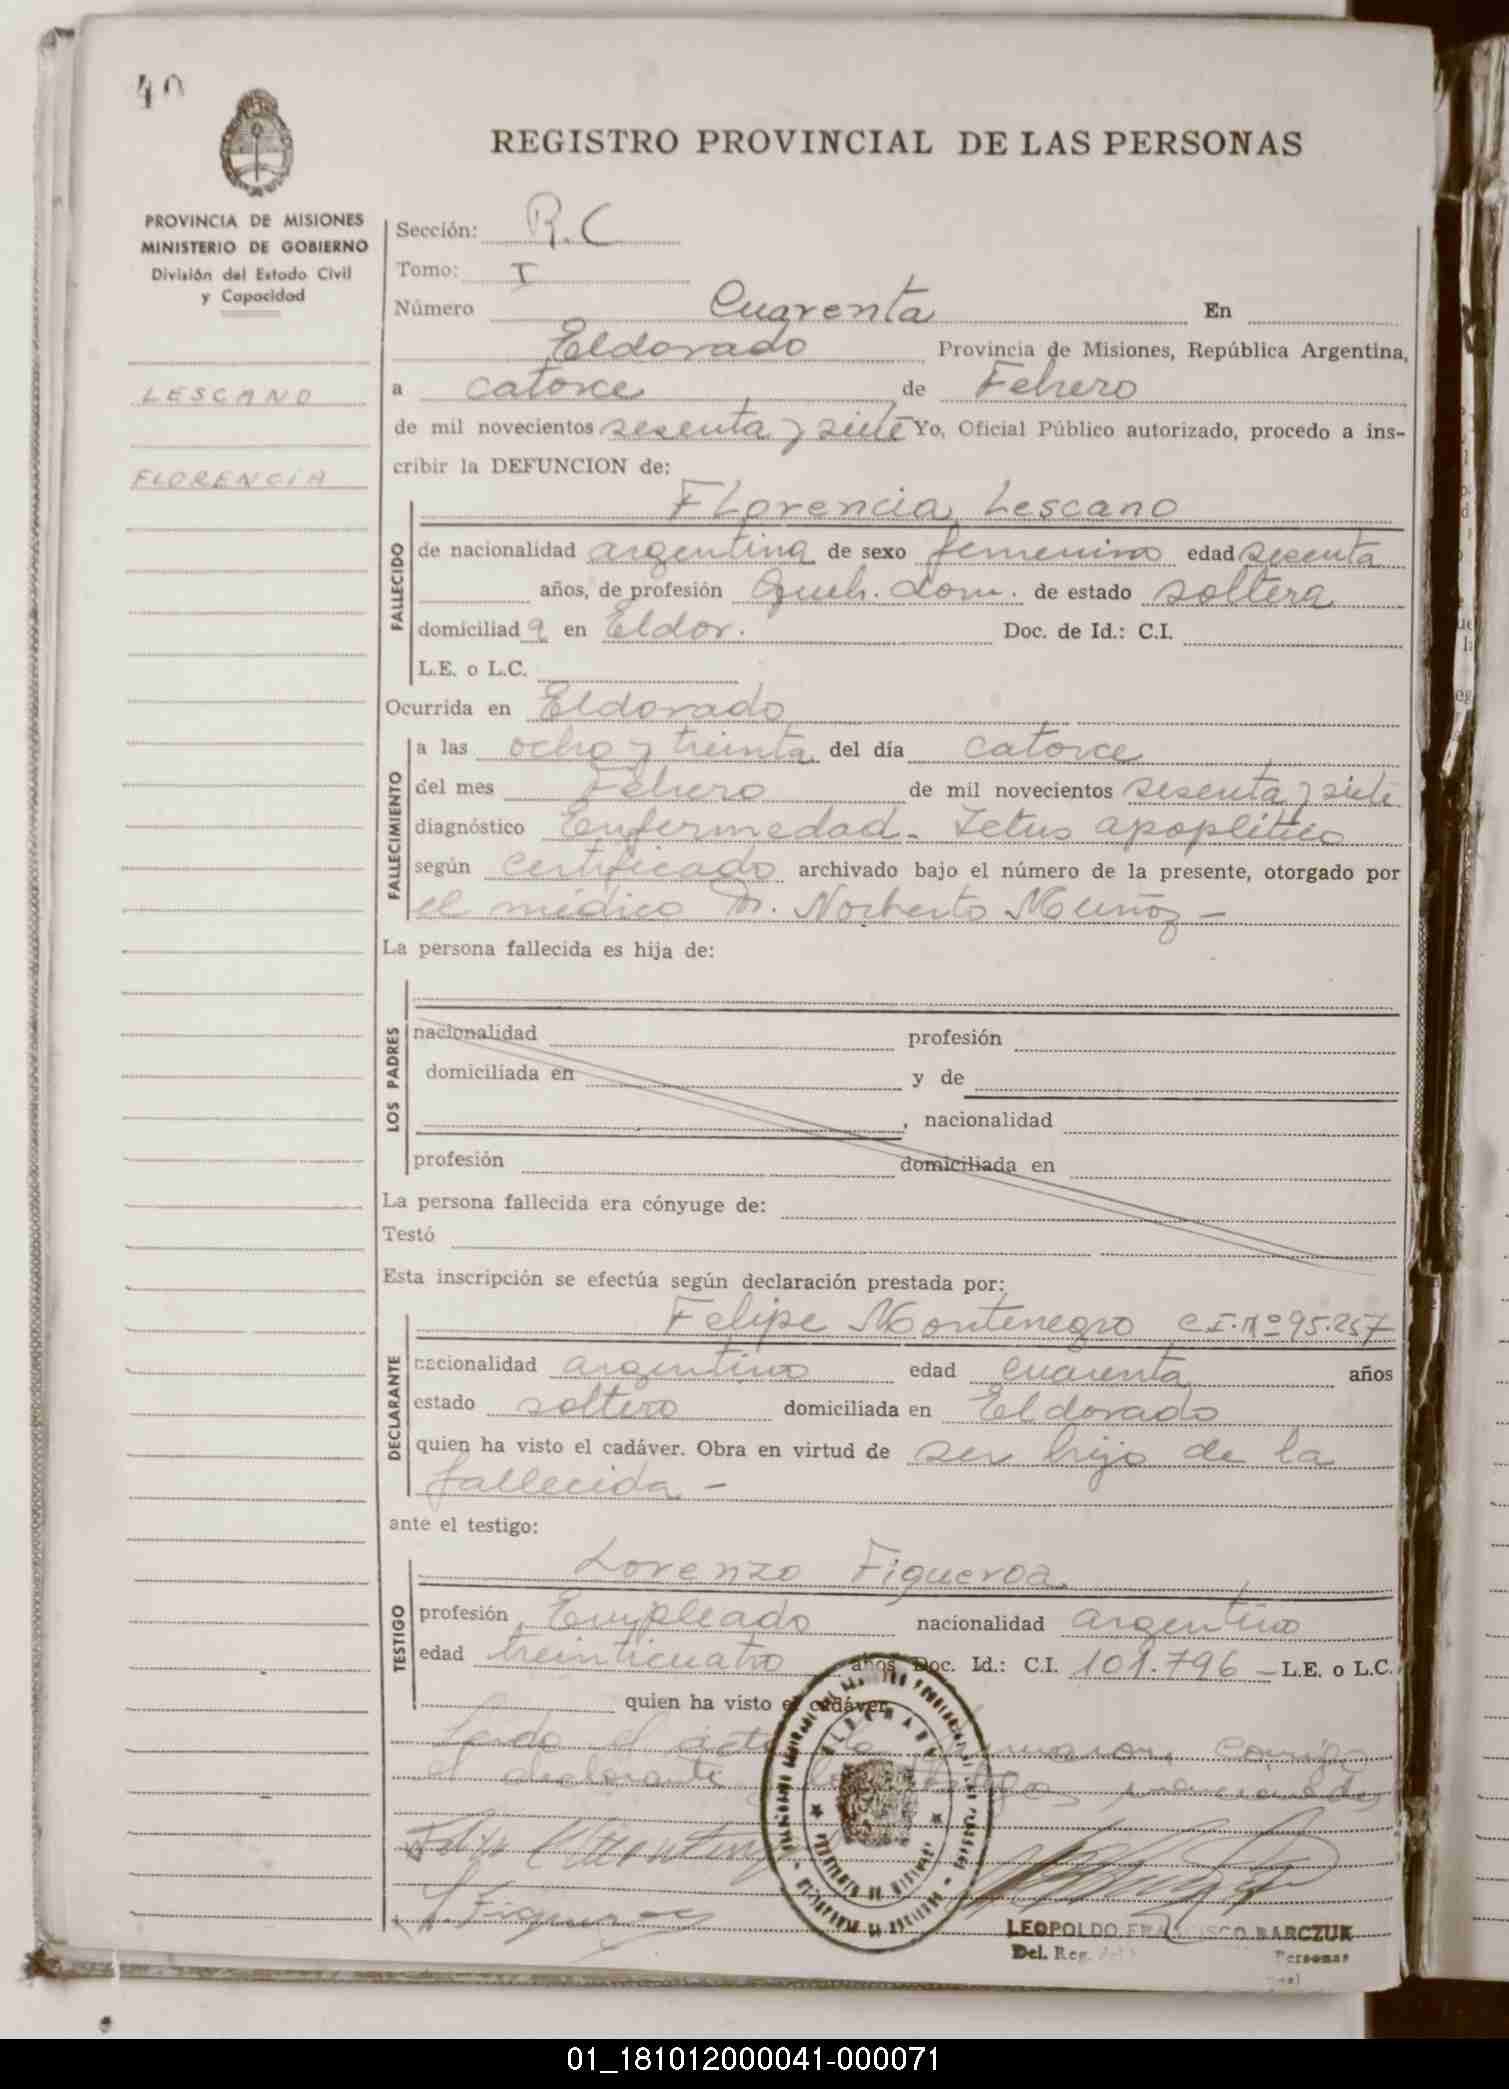 40
REGISTRO PROVINCIAL DE LAS PERSONAS
PROVINCIA DE MISIONES
MINISTERIO DE GOBIERNO
División del Estado Civil
y Capacidad
LESCANO
FLORENCIA
Sección: R.C
Tomo: I
Número Cuarenta En
Eldorado Provincia de Misiones, República Argentina,
a catorce de Febrero
de mil novecientos sesenta y siete Yo, Oficial Público autorizado, procedo a ins-
cribir la DEFUNCION de:
Florencia Lescano
FALLECIDO
de nacionalidad argentina de sexo femenino edad sesenta
años, de profesión Queh. dom. de estado soltera
domiciliada en Eldor. Doc. de Id.: C.I.
L.E. o L.C.
Ocurrida en Eldorado
FALLECIMIENTO
a las ocho y treinta del día catorce
del mes Febrero de mil novecientos sesenta y siete
diagnóstico Enfermedad - Ictus apoplético
según certificado archivado bajo el número de la presente, otorgado por
el médico Dr. Norberto Muñoz -
La persona fallecida es hija de:
LOS PADRES
nacionalidad profesión
domiciliada en y de
, nacionalidad
profesión domiciliada en
La persona fallecida era cónyuge de:
Testó
Esta inscripción se efectúa según declaración prestada por:
Felipe Montenegro C.I. Nº 95.257
DECLARANTE
nacionalidad argentino edad cuarenta años
estado soltero domiciliada en Eldorado
quien ha visto el cadáver. Obra en virtud de ser hijo de la
fallecida -
ante el testigo:
Lorenzo Figueroa
TESTIGO
profesión Empleado nacionalidad argentino
edad treinticuatro años Doc. Id.: C.I. 101.796 - L.E. o L.C.
quien ha visto el cadáver
Leida el acta la firmaron conmigo
el declarante y los testigos
ELDORADO
L. Figueroa
LEOPOLDO FRANCISCO BARCZUK
Del. Reg. Personas
01_181012000041-000071